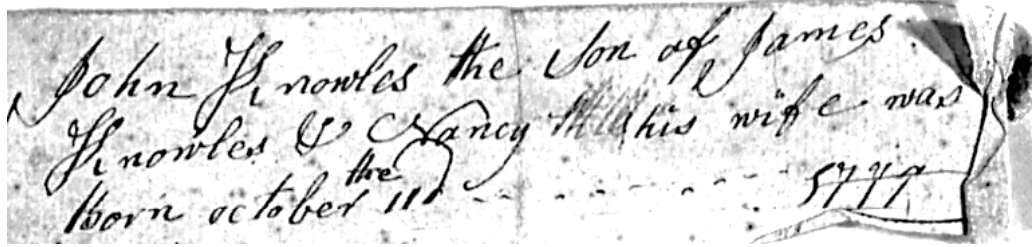 John Knowles the Son of James
Knowles & Nancy his wife was
Born october the 11th 1779